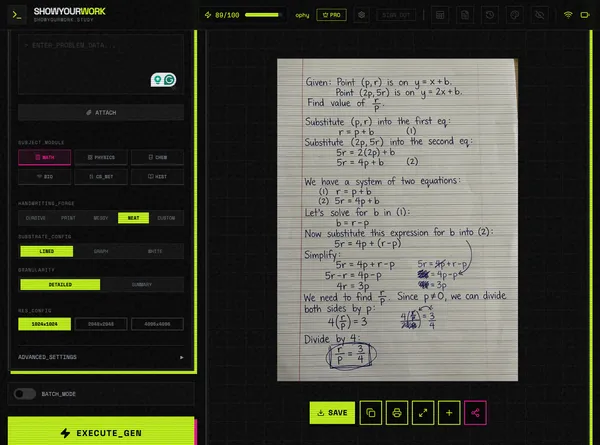 SHOWYOURWORK
SHOWYOURWORK STUDY
89/100
ophy
PRO
SIGN OUT
> ENTER_PROBLEM_DATA...
ATTACH
SUBJECT_MODULE
MATH
PHYSICS
CHEM
BIO
CO_SCT
HIST
HANDWRITING_FORGE
CURSIVE
PRINT
MESSY
NEAT
CUSTOM
SUBSTRATE_CONFIG
LINED
GRAPH
WHITE
GRANULARITY
DETAILED
SUMMARY
RES_CONFIG
1024x1024
2048x2048
4096x4096
ADVANCED_SETTINGS
BATCH_MODE
EXECUTE_GEN
Given: Point (p,r) is on y = x + b.
Point (2p, 5r) is on y = 2x + b.
Find value of r/p.
Substitute (p,r) into the first eq:
r = p + b (1)
Substitute (2p, 5r) into the second eq:
5r = 2(2p) + b
5r = 4p + b (2)
We have a system of two equations:
(1) r = p + b
(2) 5r = 4p + b
Let's solve for b in (1):
b = r - p
Now substitute this expression for b into (2):
5r = 4p + (r - p)
Simplify:
5r = 4p + r - p 5r = 4p + r - p
5r - r = 4p - p = 4p - p
4r = 3p = 3p
We need to find r/p. Since p ≠ 0, we can divide
both sides by p:
4(r/p) = 3
Divide by 4:
r/p = 3/4
SAVE